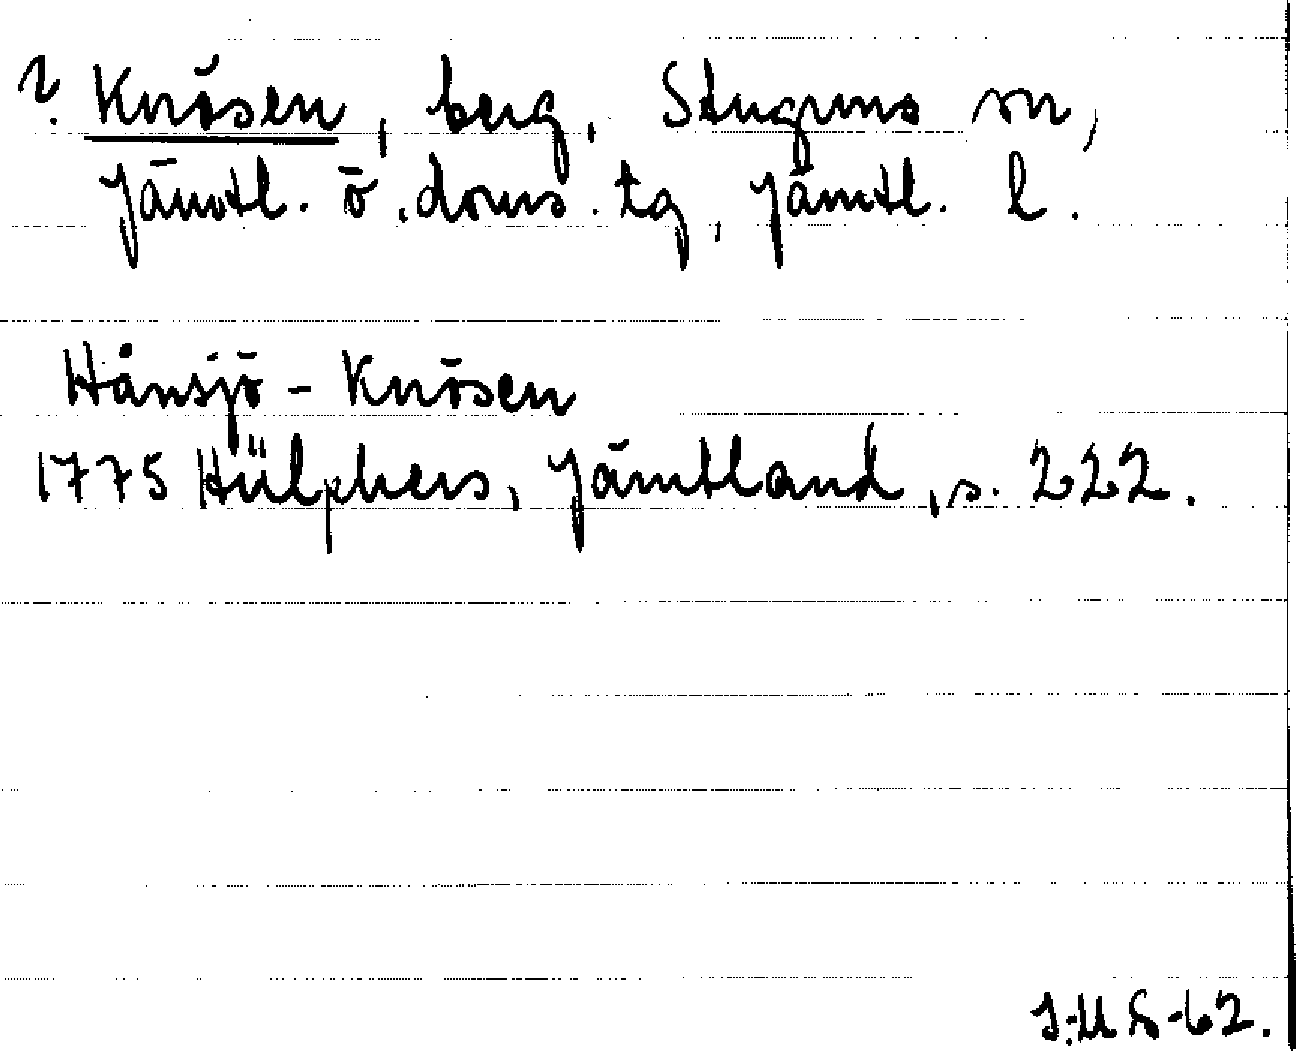 ? Knösen, berg, Stuguns sn,
Jämtl. ö. doms. tg, Jämtl. l.
Hånsjö - Knösen
1775 Hülphers, Jämtland, s. 222.
I:US-62.